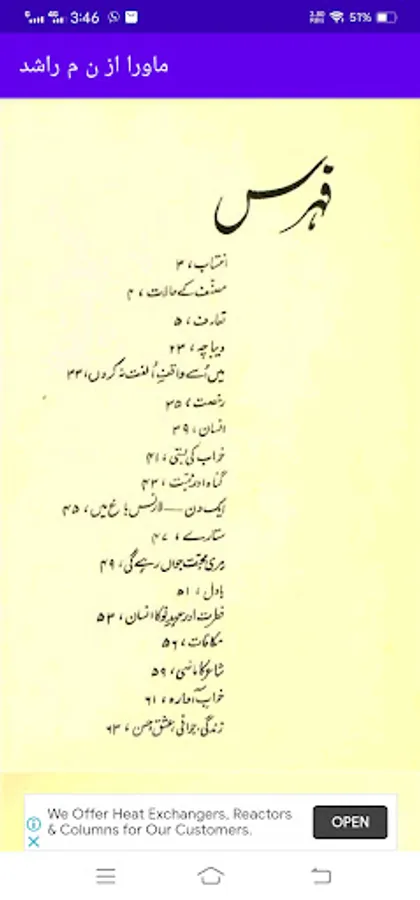 3:46
51%
ماورا از ن م راشد
فہرس
انتساب ، ۳
مصنّف کے حالات ، ۴
تعارف ، ۵
دیباچہ ، ۲۳
میں اُسے واقفِ اُلفت نہ کروں ، ۳۳
رخصت ، ۳۵
انسان ، ۳۹
خواب کی بستی ، ۴۱
گناہ اور محبّت ، ۴۳
ایک دن — لارنس باغ میں ، ۴۵
ستارے ، ۴۷
مری محبّت جواں رہے گی ، ۴۹
بادل ، ۵۱
فطرت اور عہدِ نو کا انسان ، ۵۳
مکافات ، ۵۶
شاعر کا ماضی ، ۵۹
خوابِ آوارہ ، ۶۱
زندگی، جوانی، عشق، حسن ، ۶۳
We Offer Heat Exchangers, Reactors
& Columns for Our Customers.
OPEN